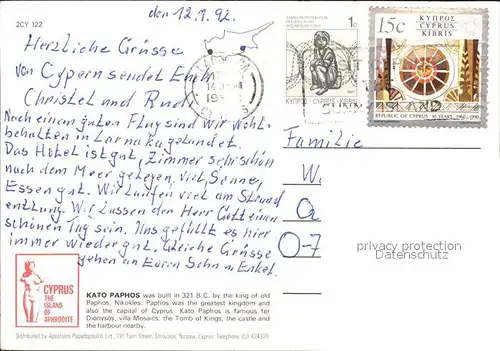 den 12.1.92.
2CY 122
Herzliche Grüsse
von Cypern sendet Euch
Christel und Rudi
Nach einem guten Flug sind wir wohl-
behalten in Larnaka gelandet.
Das Hotel ist gut, Zimmer sehr schön
nach dem Meer gelegen, viel Sonne,
Essen gut. Wir laufen viel am Strand
entlang. Wir lassen den Herr Gott einen
schönen Tag sein. Uns gefällt es hier
immer wieder gut. Gleiche Grüsse
gehen an Euren Sohn u. Enkel.
1c
ΚΥΠΡΟΣ - CYPRUS - KIBRIS
15c
ΚΥΠΡΟΣ
CYPRUS
KIBRIS
ISLAND
REPUBLIC OF CYPRUS 30 YEARS, 1960-1990
Familie
W
O-7
privacy protection
Datenschutz
CYPRUS
THE
ISLAND
OF
APHRODITE
KATO PAPHOS was built in 321 B.C. by the king of old
Paphos, Nikokles. Paphos was the greatest kingdom and
also the capital of Cyprus. Kato Paphos is famous for
Dionysos, villa Mosaics, the Tomb of Kings, the castle and
the harbour nearby.
Distributed by Apostolos Papadopoulos Ltd., Strovolos, Nicosia, Cyprus. Telephone (02) 424329